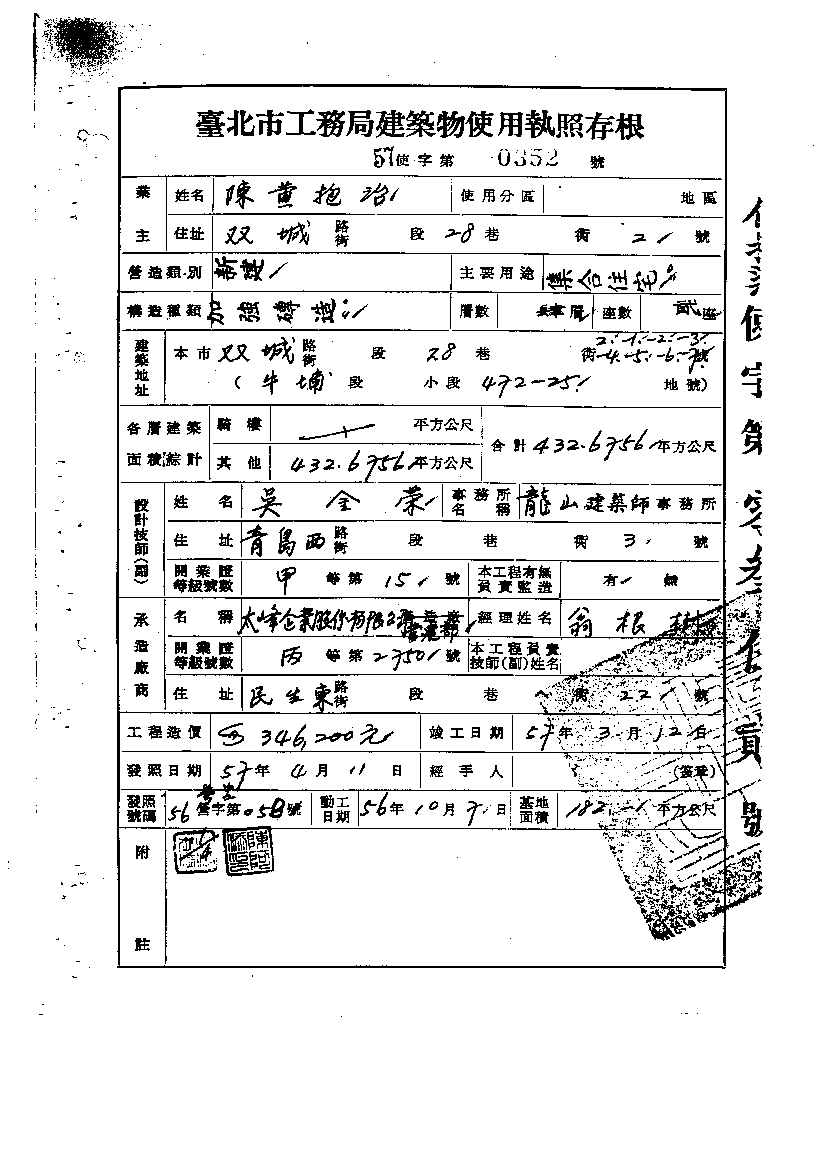 臺北市工務局建築物使用執照存根
57使字第 0352 號
業主 姓名 陳黃抱 使用分區 地區
住址 双城 路街 段 28巷 衖 21 號
營造類別 新建 主要用途 集合住宅
構造種類 加強磚造 層數 層 座數 貳座
建築地址 本市双城 路街 段 28 巷 衖 2-1-2-3-4-5-6-7號
(牛埔 段 小段 472-25 地號)
各層建築面積綜計 騎樓 平方公尺 合計 432.6756 平方公尺
其他 432.6756 平方公尺
設計技師(副) 姓名 吳全榮 事務所名稱 龍山建築師事務所
住址 青島西 路街 段 巷 衖 3 號
開業證等級號數 甲 等第 15 號 本工程有無負責監造 有 無
承造廠商 名稱 太峰企業股份有限公司營造部 經理姓名 翁根
開業證等級號數 丙 等第 2750 號 本工程負責技師(副)姓名
住址 民生東 路街 段 巷 衖 22 號
工程造價 346,200元 竣工日期 57年3月12日
發照日期 57年4月11日 經手人 (簽章)
發照號碼 56營字第058號 動工日期 56年10月7日 基地面積 182.-1 平方公尺
附註
使字第零叁伍貳號